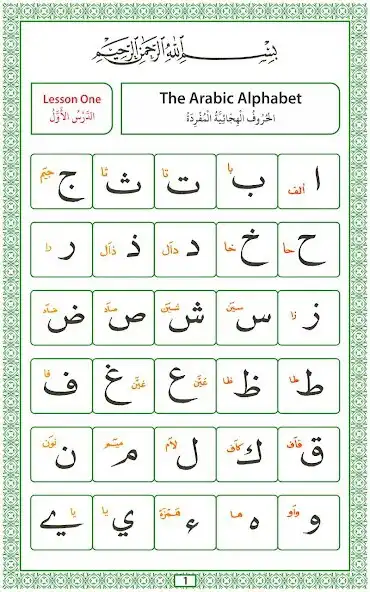 بِسْمِ اللَّهِ الرَّحْمَٰنِ الرَّحِيمِ
Lesson One
الدَّرْسُ الْأَوَّلُ
The Arabic Alphabet
الْحُرُوفُ الْهِجَائِيَّةُ الْمُفْرَدَةُ
ا الف ب با ت تا ث ثا ج جيم
ح حا خ خا د دال ذ ذال ر را
ز زا س سين ش شين ص صاد ض ضاد
ط طا ظ ظا ع عين غ غين ف فا
ق قاف ك كاف ل لام م ميم ن نون
و واو ه ها ء همزة ي يا ے يا
1